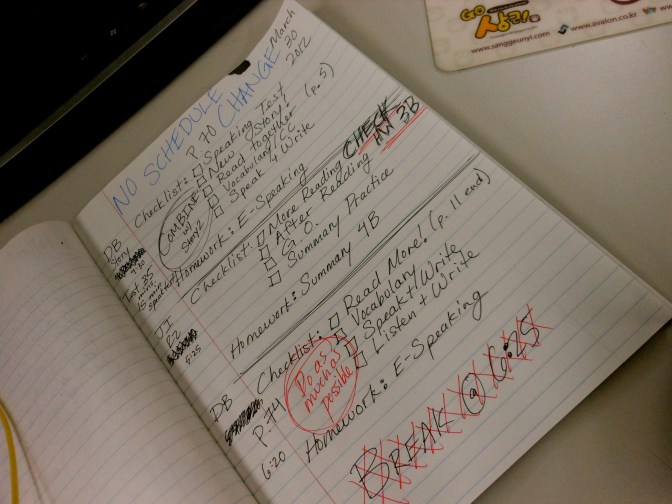 Go
상긋!
www.sanggeunyi.com
www.avalon.co.kr
NO SCHEDULE
CHANGE
March
30
2012
P. 70
Checklist: Speaking Test
New Story! (p. 5)
Read together
Vocabulary/CC
Speak + Write
COMBINE
w/
Story 2
DB
Story
4:30
Homework: E-Speaking
CHECK
HW 3B
Test 35
mins
15 min
Checklist: More Reading
After Reading
G.O.
Summary Practice
Homework: Summary 4B
5:25
DB
P. 74
6:20
Checklist: Read More! (p. 11 end)
Vocabulary
Speak + Write
Listen + Write
Do as
much as
possible
Homework: E-Speaking
BREAK @ 6:25